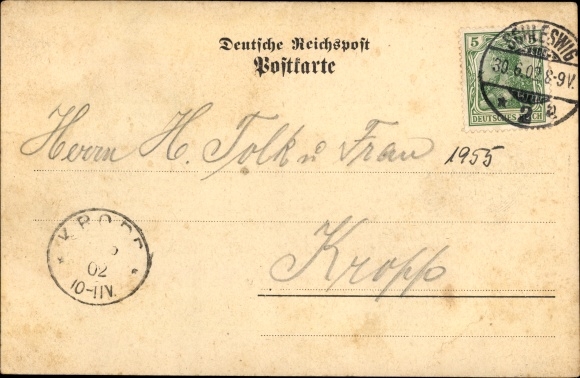 Deutsche Reichspost
Postkarte
5
DEUTSCHES REICH
SCHLESWIG
30.6.02 8-9V.
* 2 a.
Herrn H. Tolk u Frau
1955
Kropp
KROPP
02
10-11V.